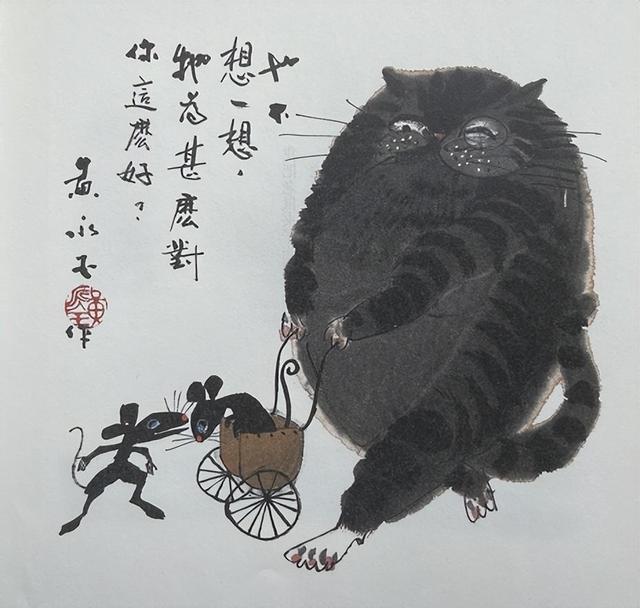 也不
想一想，
牠為甚麼對
你這麼好？
黃永玉
作